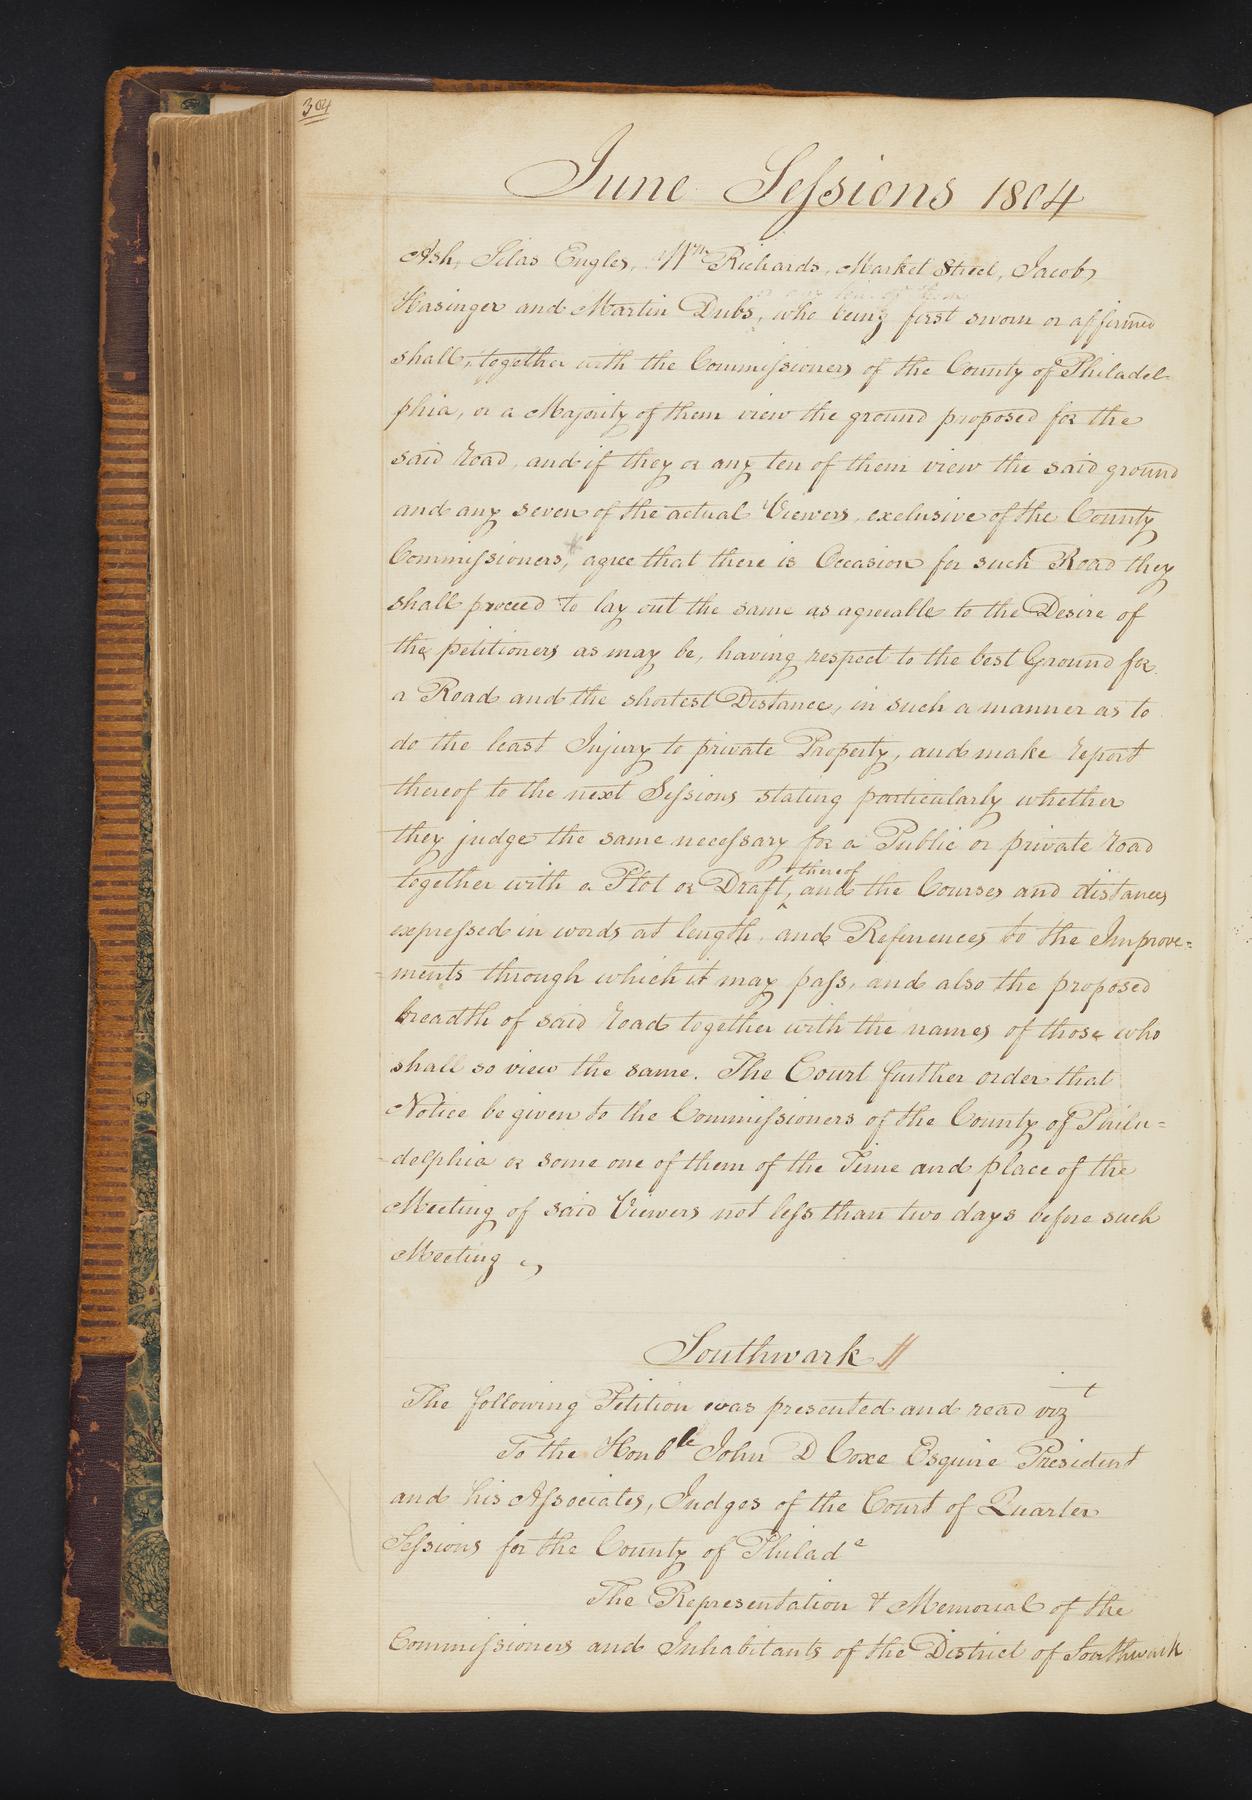 304
June Sessions 1804
Ash, Silas Engles, Wm Richards, Market Street, Jacob
or any ten of them
Hasinger and Martin Dubs, who being first sworn or affirmed
shall, together with the Commissioners of the County of Philadel-
phia, or a Majority of them view the ground proposed for the
said road, and if they or any ten of them view the said ground
and any seven of the actual Viewers, exclusive of the County
Commissioners, agree that there is Occasion for such Road they
shall proceed to lay out the same as agreeable to the Desire of
the petitioners as may be, having respect to the best Ground for
a Road and the shortest Distance, in such a manner as to
do the least Injury to private Property, and make report
thereof to the next Sessions stating particularly whether
they judge the same necessary for a Public or private road
thereof
together with a Plot or Draft, and the Courses and distances
expressed in words at length, and References to the Improve=
=ments through which it may pass, and also the proposed
breadth of said road together with the names of those who
shall so view the same. The Court further order that
Notice be given to the Commissioners of the County of Phila=
-delphia or some one of them of the Time and place of the
Meeting of said Viewers not less than two days before such
Meeting
Southwark
The following Petition was presented and read vizt
To the Honble John D Coxe Esquire President
and his Associates, Judges of the Court of Quarter
Sessions for the County of Philada
The Representation & Memorial of the
Commissioners and Inhabitants of the District of Southwark